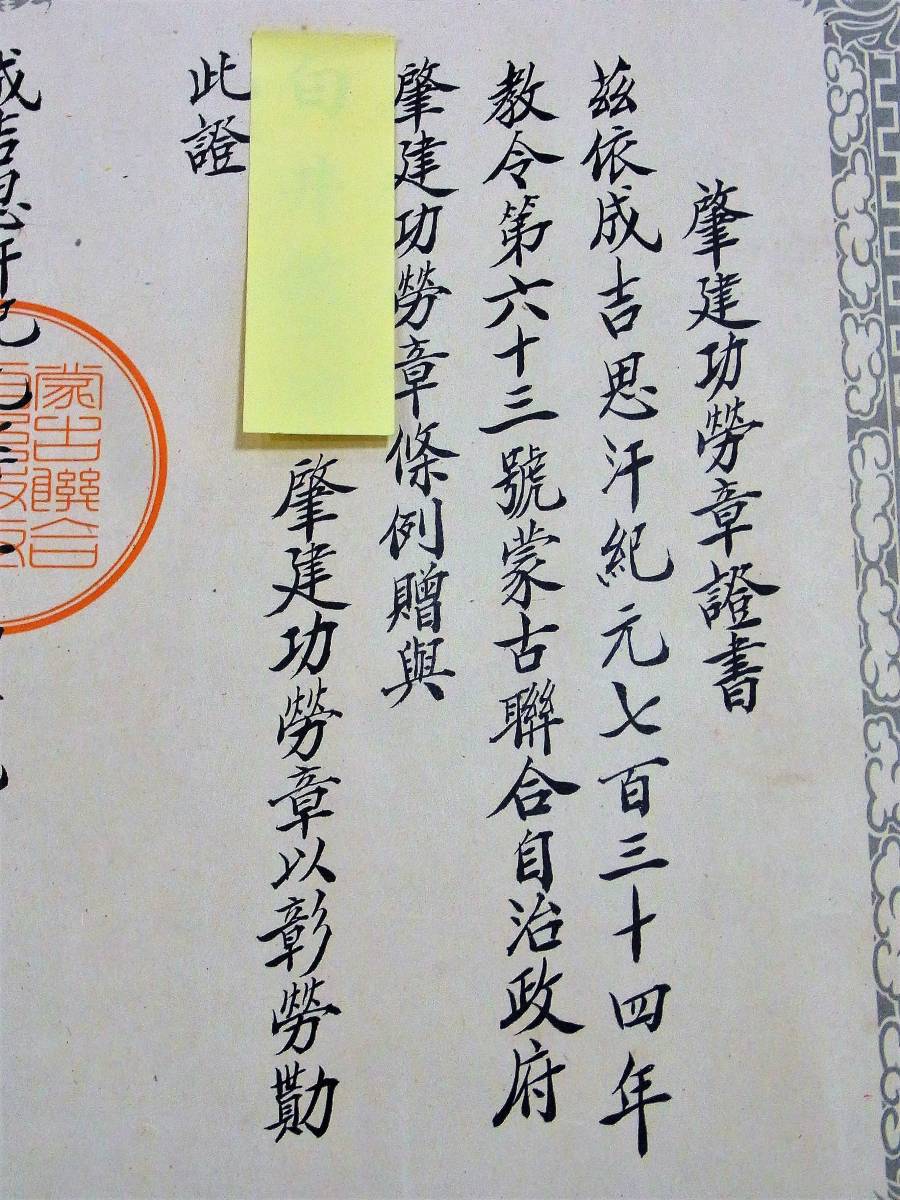 肇建功勞章證書
茲依成吉思汗紀元七百三十四年
教令第六十三號蒙古聯合自治政府
肇建功勞章條例贈與
肇建功勞章以彰勞勩
此證
成吉思汗紀元
蒙古聯合